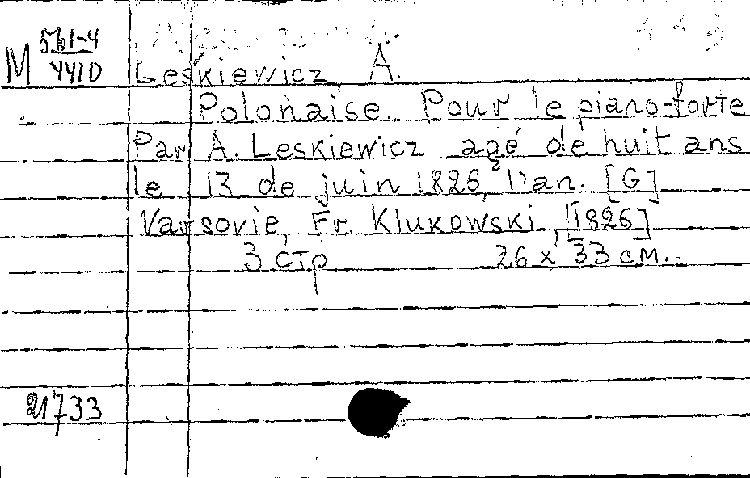 M 561-4
4410
Leskiewicz A.
Polonaise. Pour le piano-forte
Par A. Leskiewicz agé de huit ans
le 13 de juin 1826, l'an. [G]
Varsovie, Fr. Klukowski, [1826]
3 стр 26 x 33 см.
21733